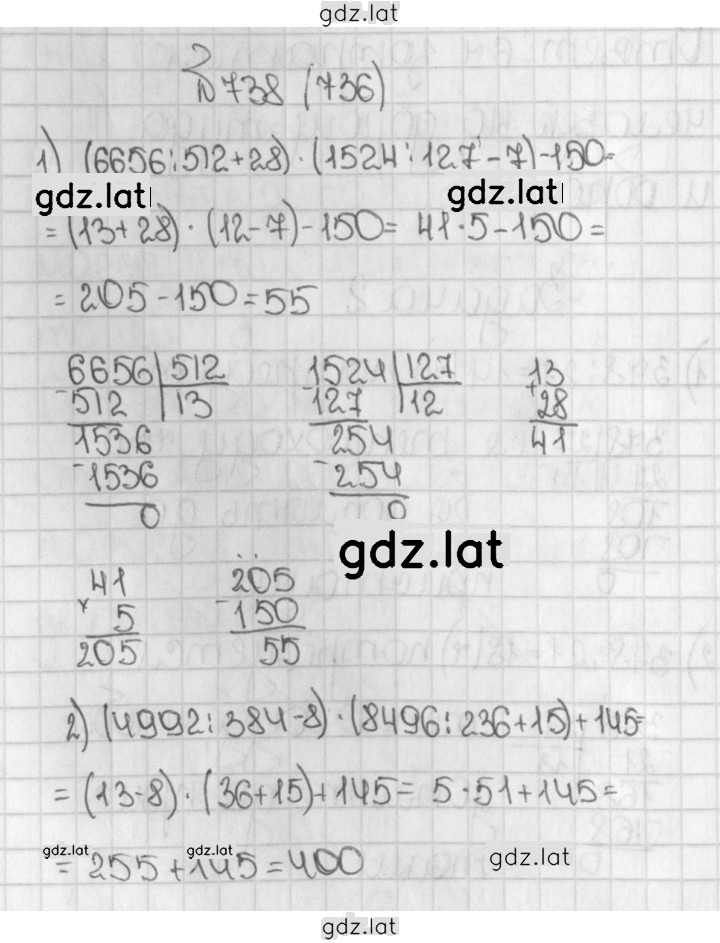 gdz.lat
№738 (736)
1) (6656:512+28)·(1524:127-7)-150=
gdz.lat gdz.lat
=(13+28)·(12-7)-150= 41·5-150=
=205-150=55
6656|512 1524|127 13
-512 |13 -127 |12 +28
1536 254 41
-1536 -254
0 0
gdz.lat
41 205
×5 -150
205 55
2) (4992:384-8)·(8496:236+15)+145=
=(13-8)·(36+15)+145= 5·51+145=
gdz.lat gdz.lat gdz.lat
=255+145=400
gdz.lat